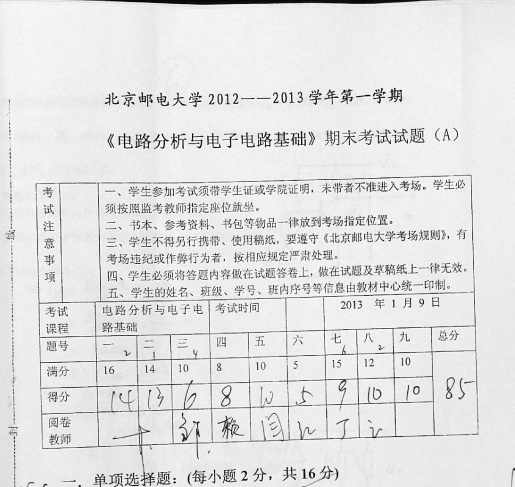 北京邮电大学2012——2013学年第一学期
《电路分析与电子电路基础》期末考试试题（A）
考试注意事项
一、学生参加考试须带学生证或学院证明，未带者不准进入考场。学生必
须按照监考教师指定座位就坐。
二、书本、参考资料、书包等物品一律放到考场指定位置。
三、学生不得另行携带、使用稿纸，要遵守《北京邮电大学考场规则》，有
考场违纪或作弊行为者，按相应规定严肃处理。
四、学生必须将答题内容做在试题答卷上，做在试题及草稿纸上一律无效。
五、学生的姓名、班级、学号、班内序号等信息由教材中心统一印制。
考试 电路分析与电子电 考试时间 2013 年 1 月 9 日
课程 路基础
题号 一 二 三 四 五 六 七 八 九 总分
2 1 4 6 2
满分 16 14 10 8 10 5 15 12 10
得分 14 13 6 8 10 5 9 10 10 85
阅卷
教师
一、单项选择题：(每小题 2 分，共 16 分)